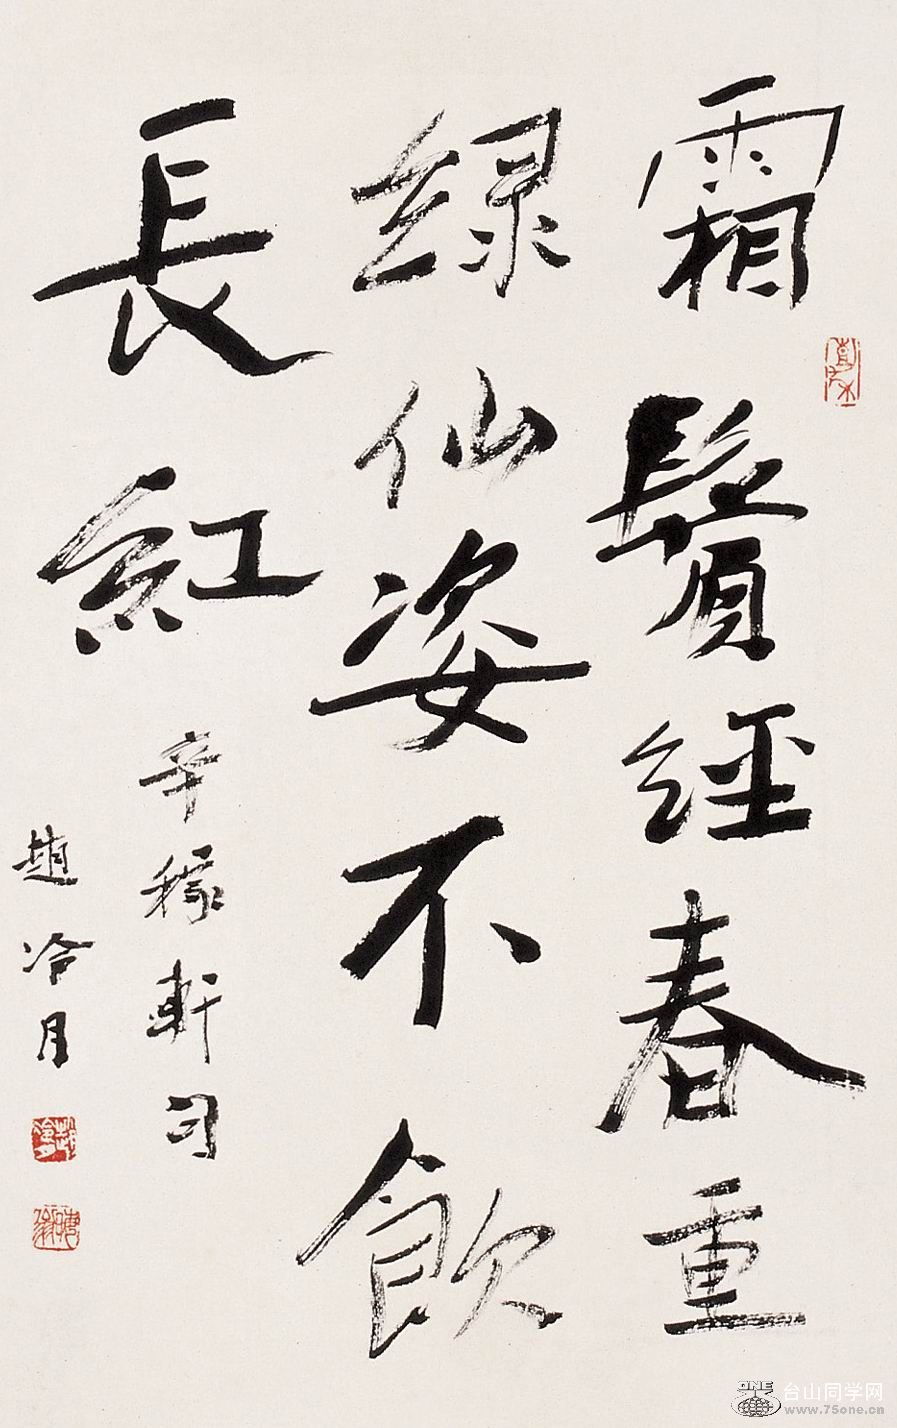 霜鬢經春重
綠仙姿不飲
長紅
辛稼軒句
趙冷月
台山同学网
www.75one.cn